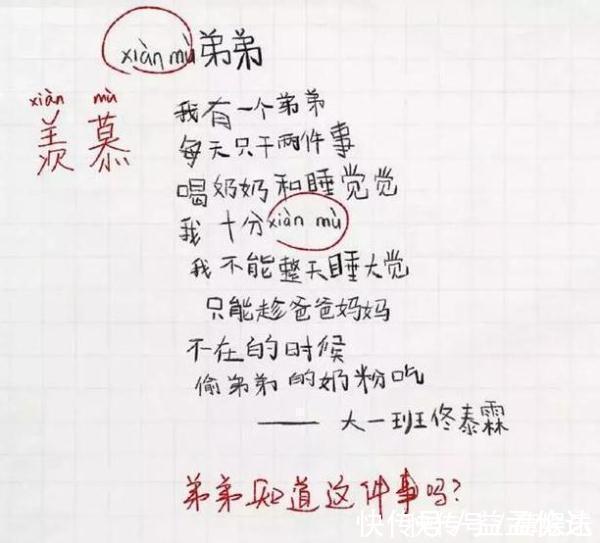 xiàn mù弟弟
xiàn mù
羡慕
我有一个弟弟
每天只干两件事
喝奶奶和睡觉觉
我十分xiàn mù
我不能整天睡大觉
只能趁爸爸妈妈
不在的时候
偷弟弟的奶粉吃
——大一班佟泰霖
弟弟知道这件事吗?